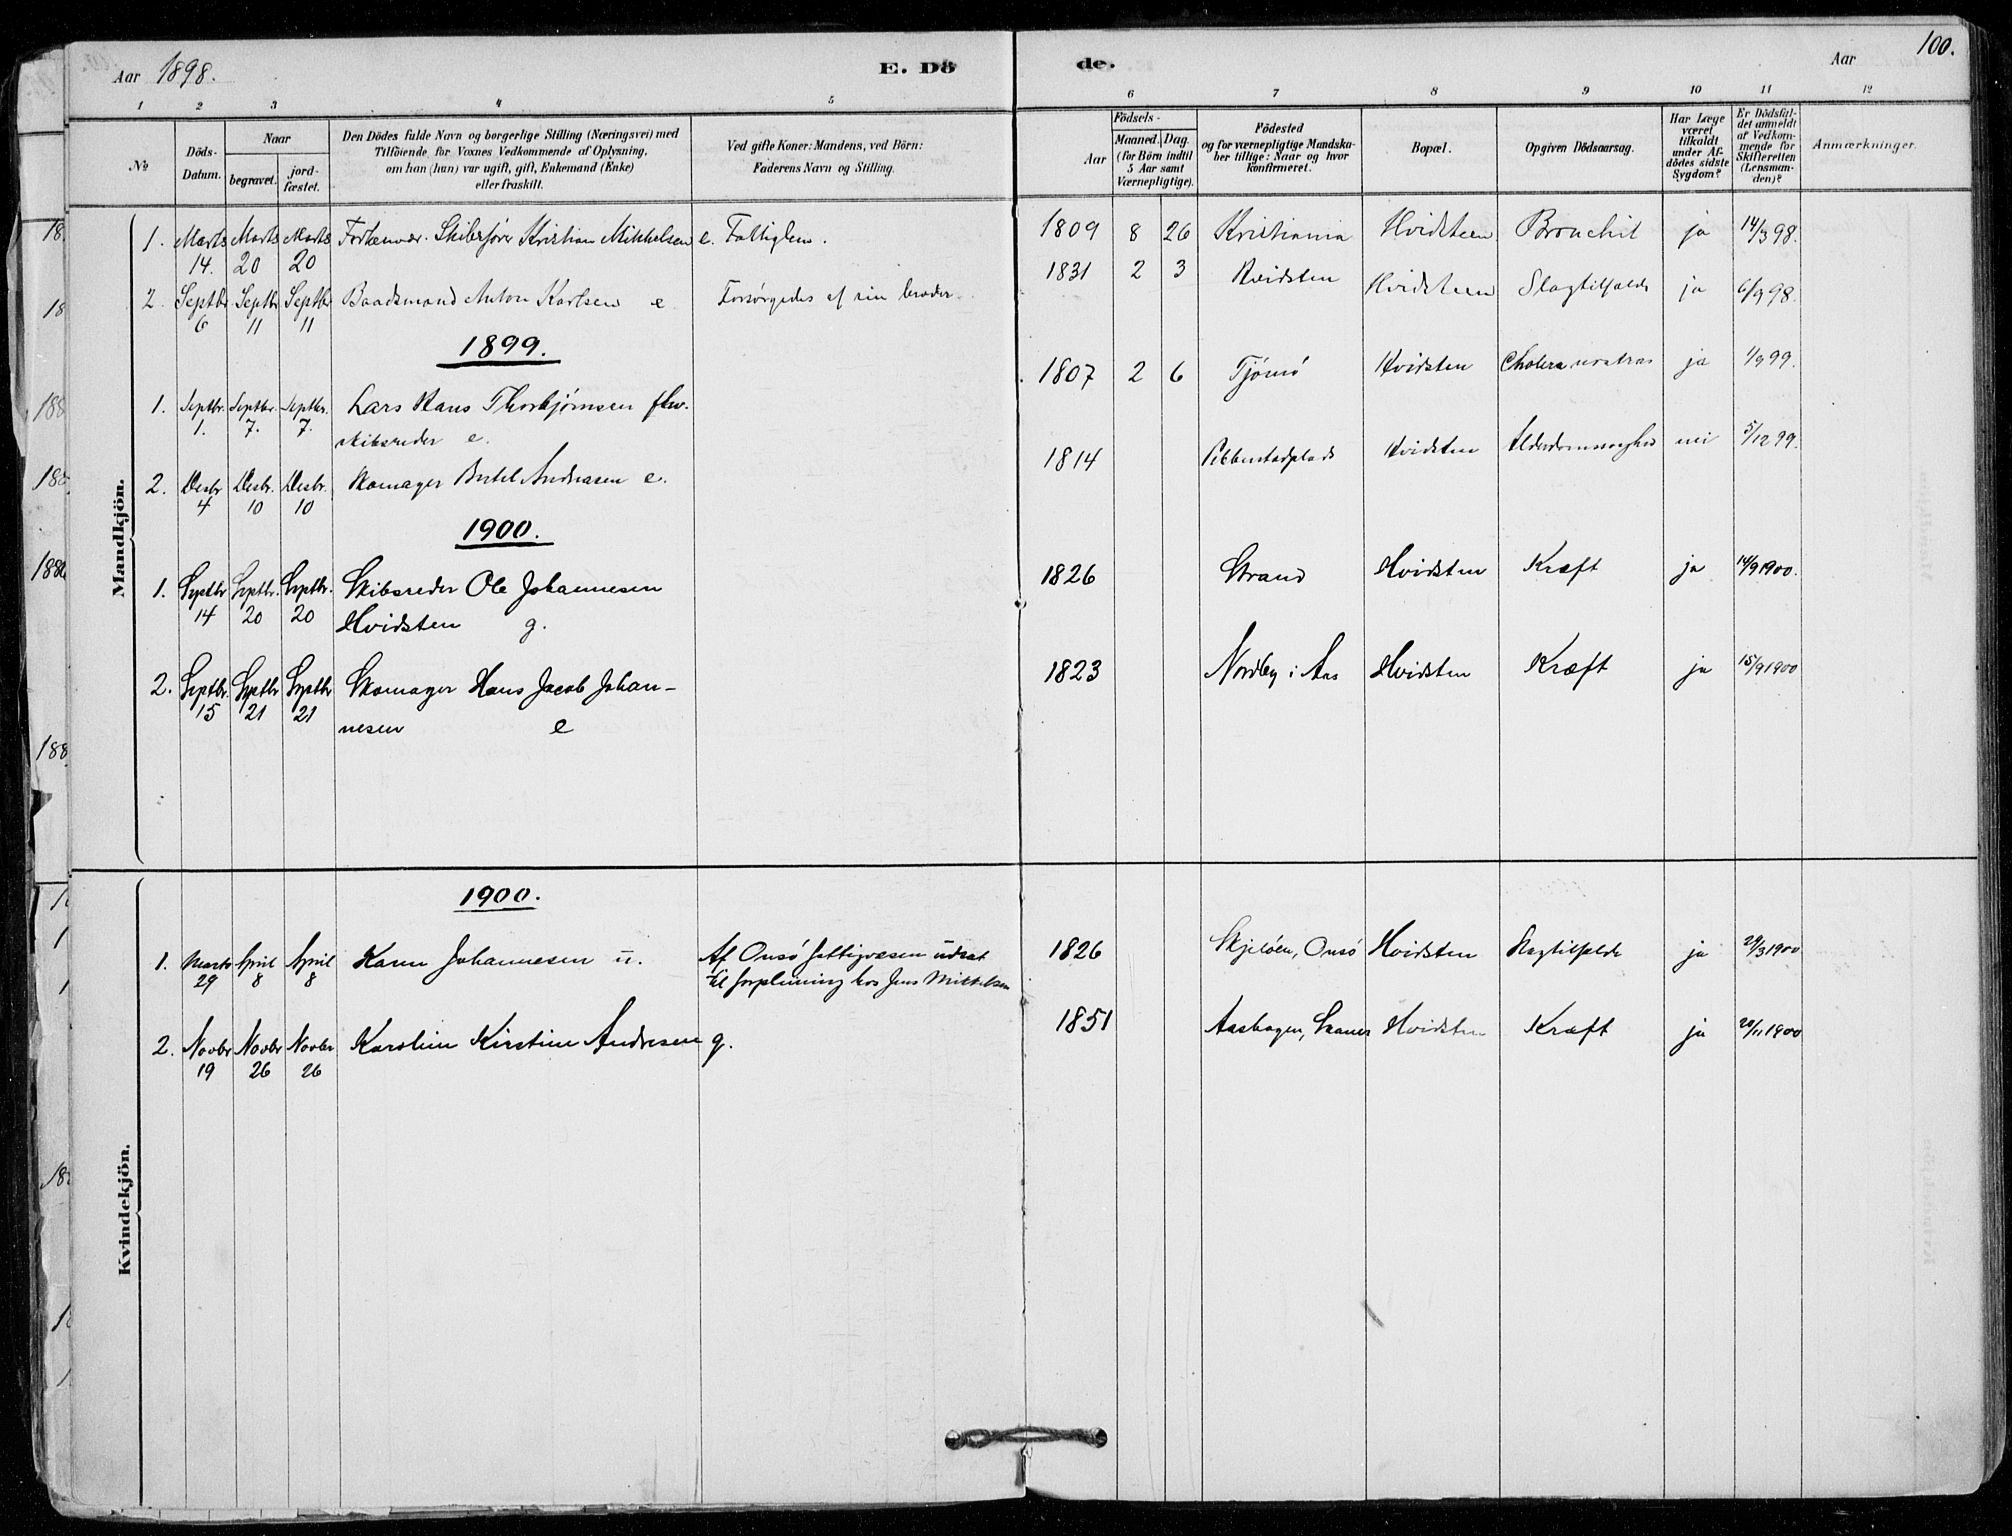 Aar 1898.
E. Dö
de.
Aar
100.
1 2 3 4 5 6 7 8 9 10 11 12
No
Döds-Datum.
Naar
begravet.
jordfæstet.
Den Dödes fulde Navn og borgerlige Stilling (Næringsvei) med
Tilföiende for Voxnes Vedkommende af Oplysning,
om han (hun) var ugift, gift, Enkemand (Enke)
eller fraskilt.
Ved gifte Koner: Mandens, ved Börn:
Faderens Navn og Stilling.
Födsels-
Aar
Maaned. Dag.
(for Börn indtil
5 Aar samt
Værnepligtige).
Födested
og for værnepligtige Mandska-
ber tillige: Naar og hvor
konfirmeret.
Bopæl.
Opgiven Dödsaarsag.
Har Læge
været
tilkaldt
under Af-
dödes sidste
Sygdom?
Er Dödsfal-
det anmeldt
af Vedkom-
mende for
Skifteretten
(Lensman-
den)?
Anmærkninger.
Mandkjön.
1. Marts 14. Marts 20 Marts 20 Skibsfører Kristian Mikkelsen e. Fattiglem. 1809 8 26 Kristiania Hvidsteen Bronchit ja 14/3 98.
2. Septbr 6 Septbr 11 Septbr 11 Baadsmand Anton Karlsen e Forsørgedes af sin broder. 1831 2 3 Hvidsten Hvidsteen Slagtilfælde ja 6/9 98.
1899.
1. Septbr. 1. Septbr. 7. Septbr. 7. Lars Hans Thorbjørnsen fhv.
skibsreder e. 1807 2 6 Tjømø Hvidsten Cholera nostras ja 1/9 99.
2. Desbr. 4 Desbr. 10 Desbr. 10 Skomager Bertel Andreasen e. 1814 Hvidsten nei 5/12 99.
1900.
1. Septbr 14 Septbr. 20 Septbr. 20 Skibsreder Ole Johannesen
Hvidsten g. 1826 Strand Hvidsten Kræft ja 14/9 1900.
2. Septbr. 15 Septbr 21 Septbr 21 Skomager Hans Jacob Johan-
nesen e 1823 Nordby i Aas Hvidsten Kræft ja 15/9 1900
Kvindekjön.
1900.
1. Marts 29 April 8 April 8 Karen Johannesen u. Af Onsö fattigvæsen udsat
til forpleining hos Jens Mikkelsen 1826 Skjeløen, Onsö Hvidsten Slagtilfælde ja 29/3 1900
2. Novbr 19 Novbr 26 Novbr 26 Karoline Kirstine Andresen g. 1851 Aashagen, Hvidsten Kræft ja 20/11 1900